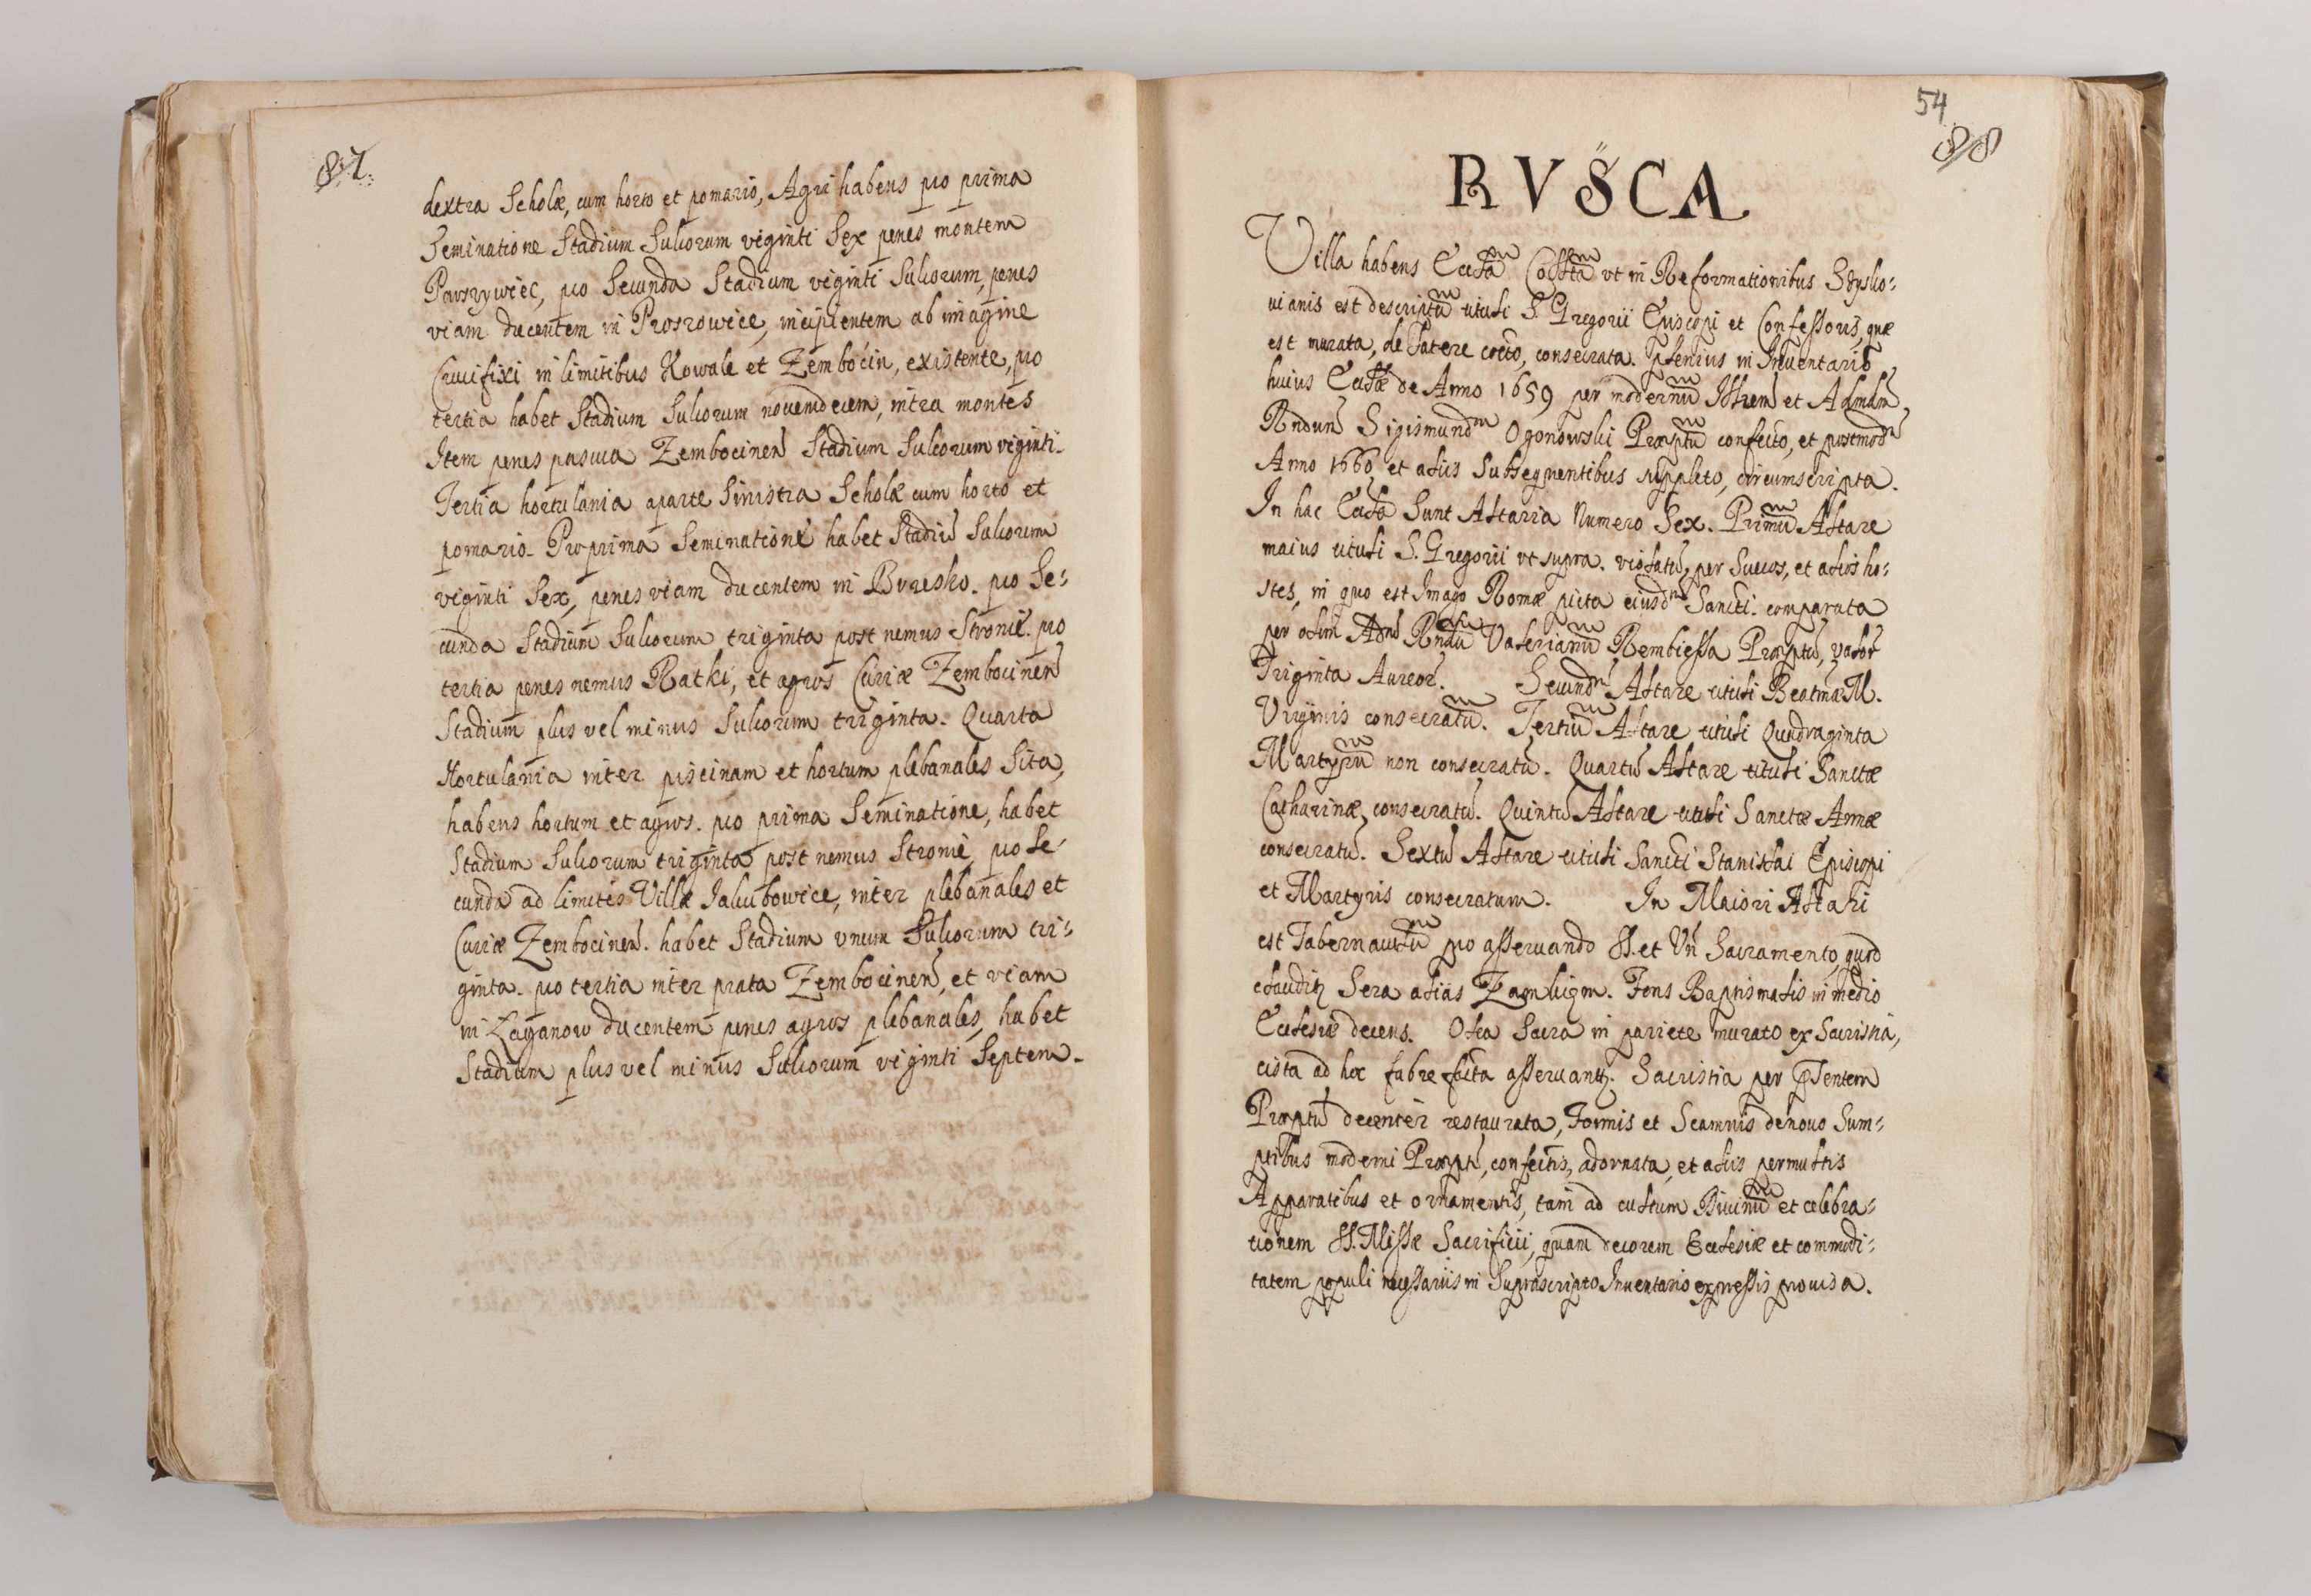 87.
dextra Scholæ, cum horto et pomario, Agri habens pro prima
Seminatione Stadium Sulcorum viginti Sex penes montem
Parszywiec, pro Secunda Stadium viginti Sulcorum, penes
viam ducentem in Proszowice, incipientem ab imagine
Crucifixi in limitibus Kowale et Zembocin, existente, pro
tertia habet Stadium Sulcorum novemdecem, intra montes
Item penes pascua Zembocinen Stadium Sulcorum viginti.
Tertia hortulania aparte Sinistra Scholæ cum horto et
pomario. Pro prima Seminatione habet Stadiū Sulcorum
viginti Sex, penes viam ducentem in Brzesko. pro Se:
cunda Stadium Sulcorum triginta post nemus Stronie. pro
tertia penes nemus Ratki, et agros Curiæ Zembocinen
Stadium plus vel minus Sulcorum triginta. Quarta
Hortulania inter piscinam et hortum plebanales Sita,
habens hortum et agros. pro prima Seminatione, habet
Stadium Sulcorum triginta post nemus Stronie, pro Se:
cunda ad limites Villæ Jakubowice, inter plebanales et
Curiæ Zembocinen. habet Stadium vnum Sulcorum tri:
ginta. pro tertia inter prata Zembocinen, et viam
in Łaganow ducentem penes agros plebanales, habet
Stadium plus vel minus Sulcorum viginti Septem.
54
88
RVSCA
Villa habens Ecclām vt in Reformationibus Szysko:
vianis est descriptū tituli S. Gregorii Episcopi et Confessoris, quæ
est murata, de latere cocto, consecrata. plenius in Inuentario
huius Ecclæ de Anno 1659 per modernū Illrem et Admdm
Rndum Sigismundm Ogonowski Præptū confecto, et postmodm
Anno 1660 et aliis Subsequentibus suppleto, circumscripta.
In hac Eccla Sunt Altaria Numero Sex. Primū Altare
maius tituli S. Gregorii vt supra. violatū per Suecos, et alios ho:
stes, in quo est Imago Romæ picta eiusdm Sancti. comparata
per olim Adm Rndū Valerianū Rembiessa Præptū, valor
Triginta Aureor. Secundm Altare tituli Beatmæ M.
Virginis consecratū. Tertiū Altare tituli Quadraginta
Martyrū non consecratū. Quartū Altare tituli Sanctæ
Catharinæ, consecratū. Quintū Altare tituli Sanctæ Annæ
consecratū. Sextū Altare tituli Sancti Stanislai Episcopi
et Martyris consecratum. In Maiori Altari
est Tabernaculū pro asseruando SS. et Vn Sacramento, quod
clauditz Sera alias Zamkigm. Fons Baptismalis in medio
Ecclesiæ decens. Olea Sacra in pariete murato ex Sacristia,
cista ad hoc fabrefacta asseruantz. Sacristia per pսentem
Præptū decenter restaurata, Formis et Scamnis denouo Sum:
ptibus moderni Præpti, confectis, adornata, et aliis permultis
Apparatibus et ornamentis, tam ad cultum Diuinū et celebra:
tionem SS. Missæ Sacrificii, quam decorem Ecclesiæ et commodi:
tatem populi necessariis in Suprascripto Inuentario expressis prouisa.